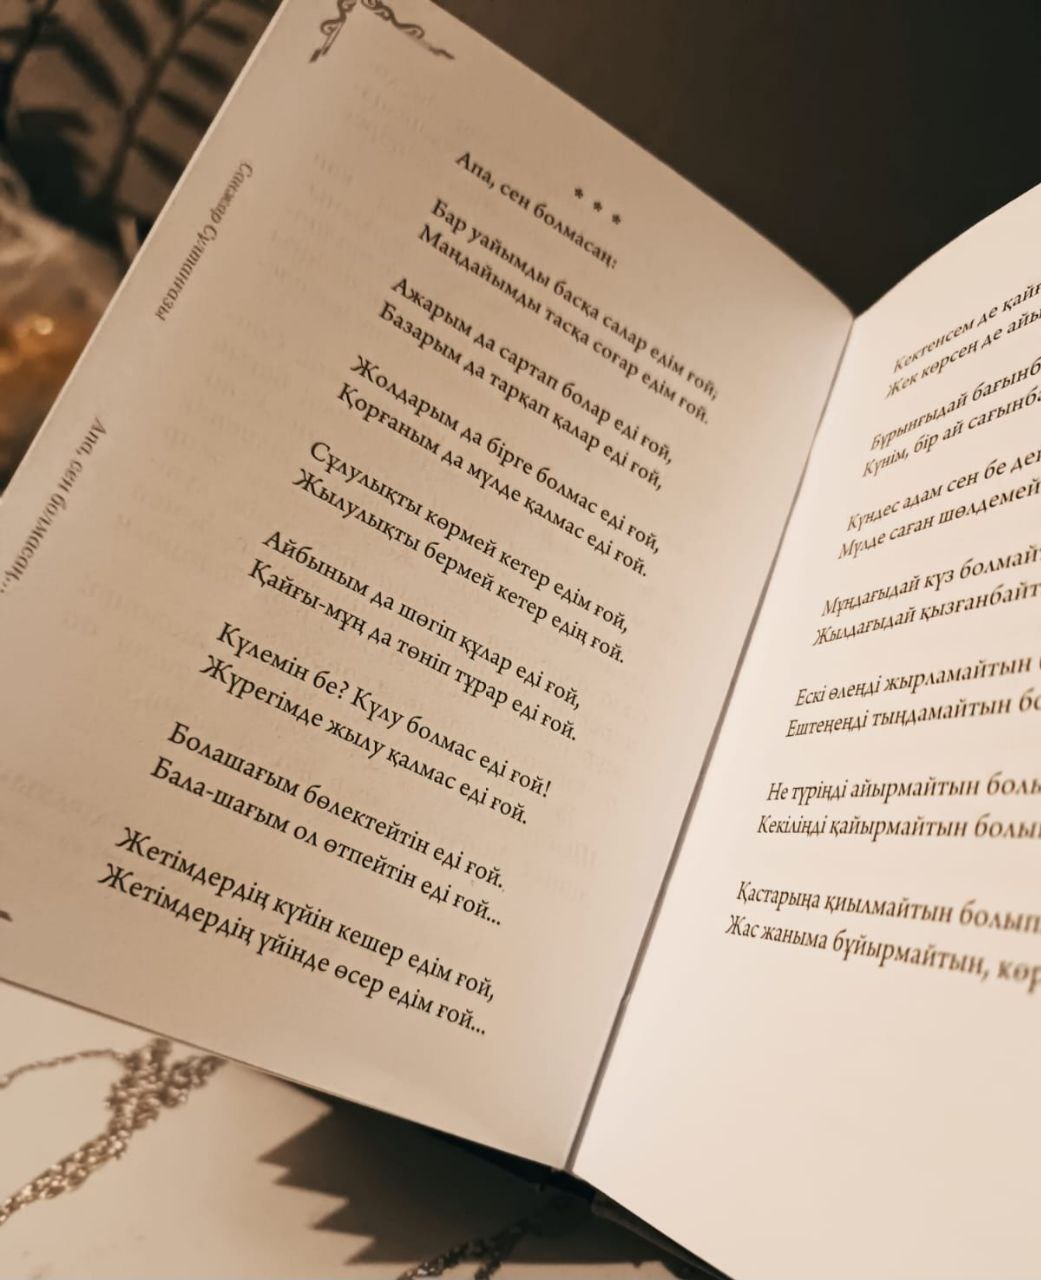 Санжар Сұлтанғазы
Апа, сен болмасаң...
* * *
Апа, сен болмасаң:
Бар уайымды басқа салар едім ғой,
Маңдайымды тасқа соғар едім ғой.
Ажарым да сартап болар еді ғой,
Базарым да тарқап қалар еді ғой,
Жолдарым да бірге болмас еді ғой,
Қорғаным да мүлде қалмас еді ғой.
Сұлулықты көрмей кетер едім ғой,
Жылулықты бермей кетер едің ғой.
Айбыным да шөгіп құлар еді ғой,
Қайғы-мұң да төніп тұрар еді ғой.
Күлемін бе? Күлу болмас еді ғой!
Жүрегімде жылу қалмас еді ғой.
Болашағым бөлектейтін еді ғой.
Бала-шағым ол өтпейтін еді ғой...
Жетімдердің күйін кешер едім ғой,
Жетімдердің үйінде өсер едім ғой...
Кектенсем де
Жек көрсең де
Бұрынғыдай
Күнім, бір ай
Күндес адам сен бе
Мүлде саған шөлдемей
Мұндағыдай күз
Жылдағыдай
Ескі өлеңді жырламайтын
Ештеңеңді тыңдамайтын
Не түріңді айырмайтын
Кекіліңді қайырмайтын
Қастарыңа қиылмайтын
Жас жаныма бұйырмайтын,